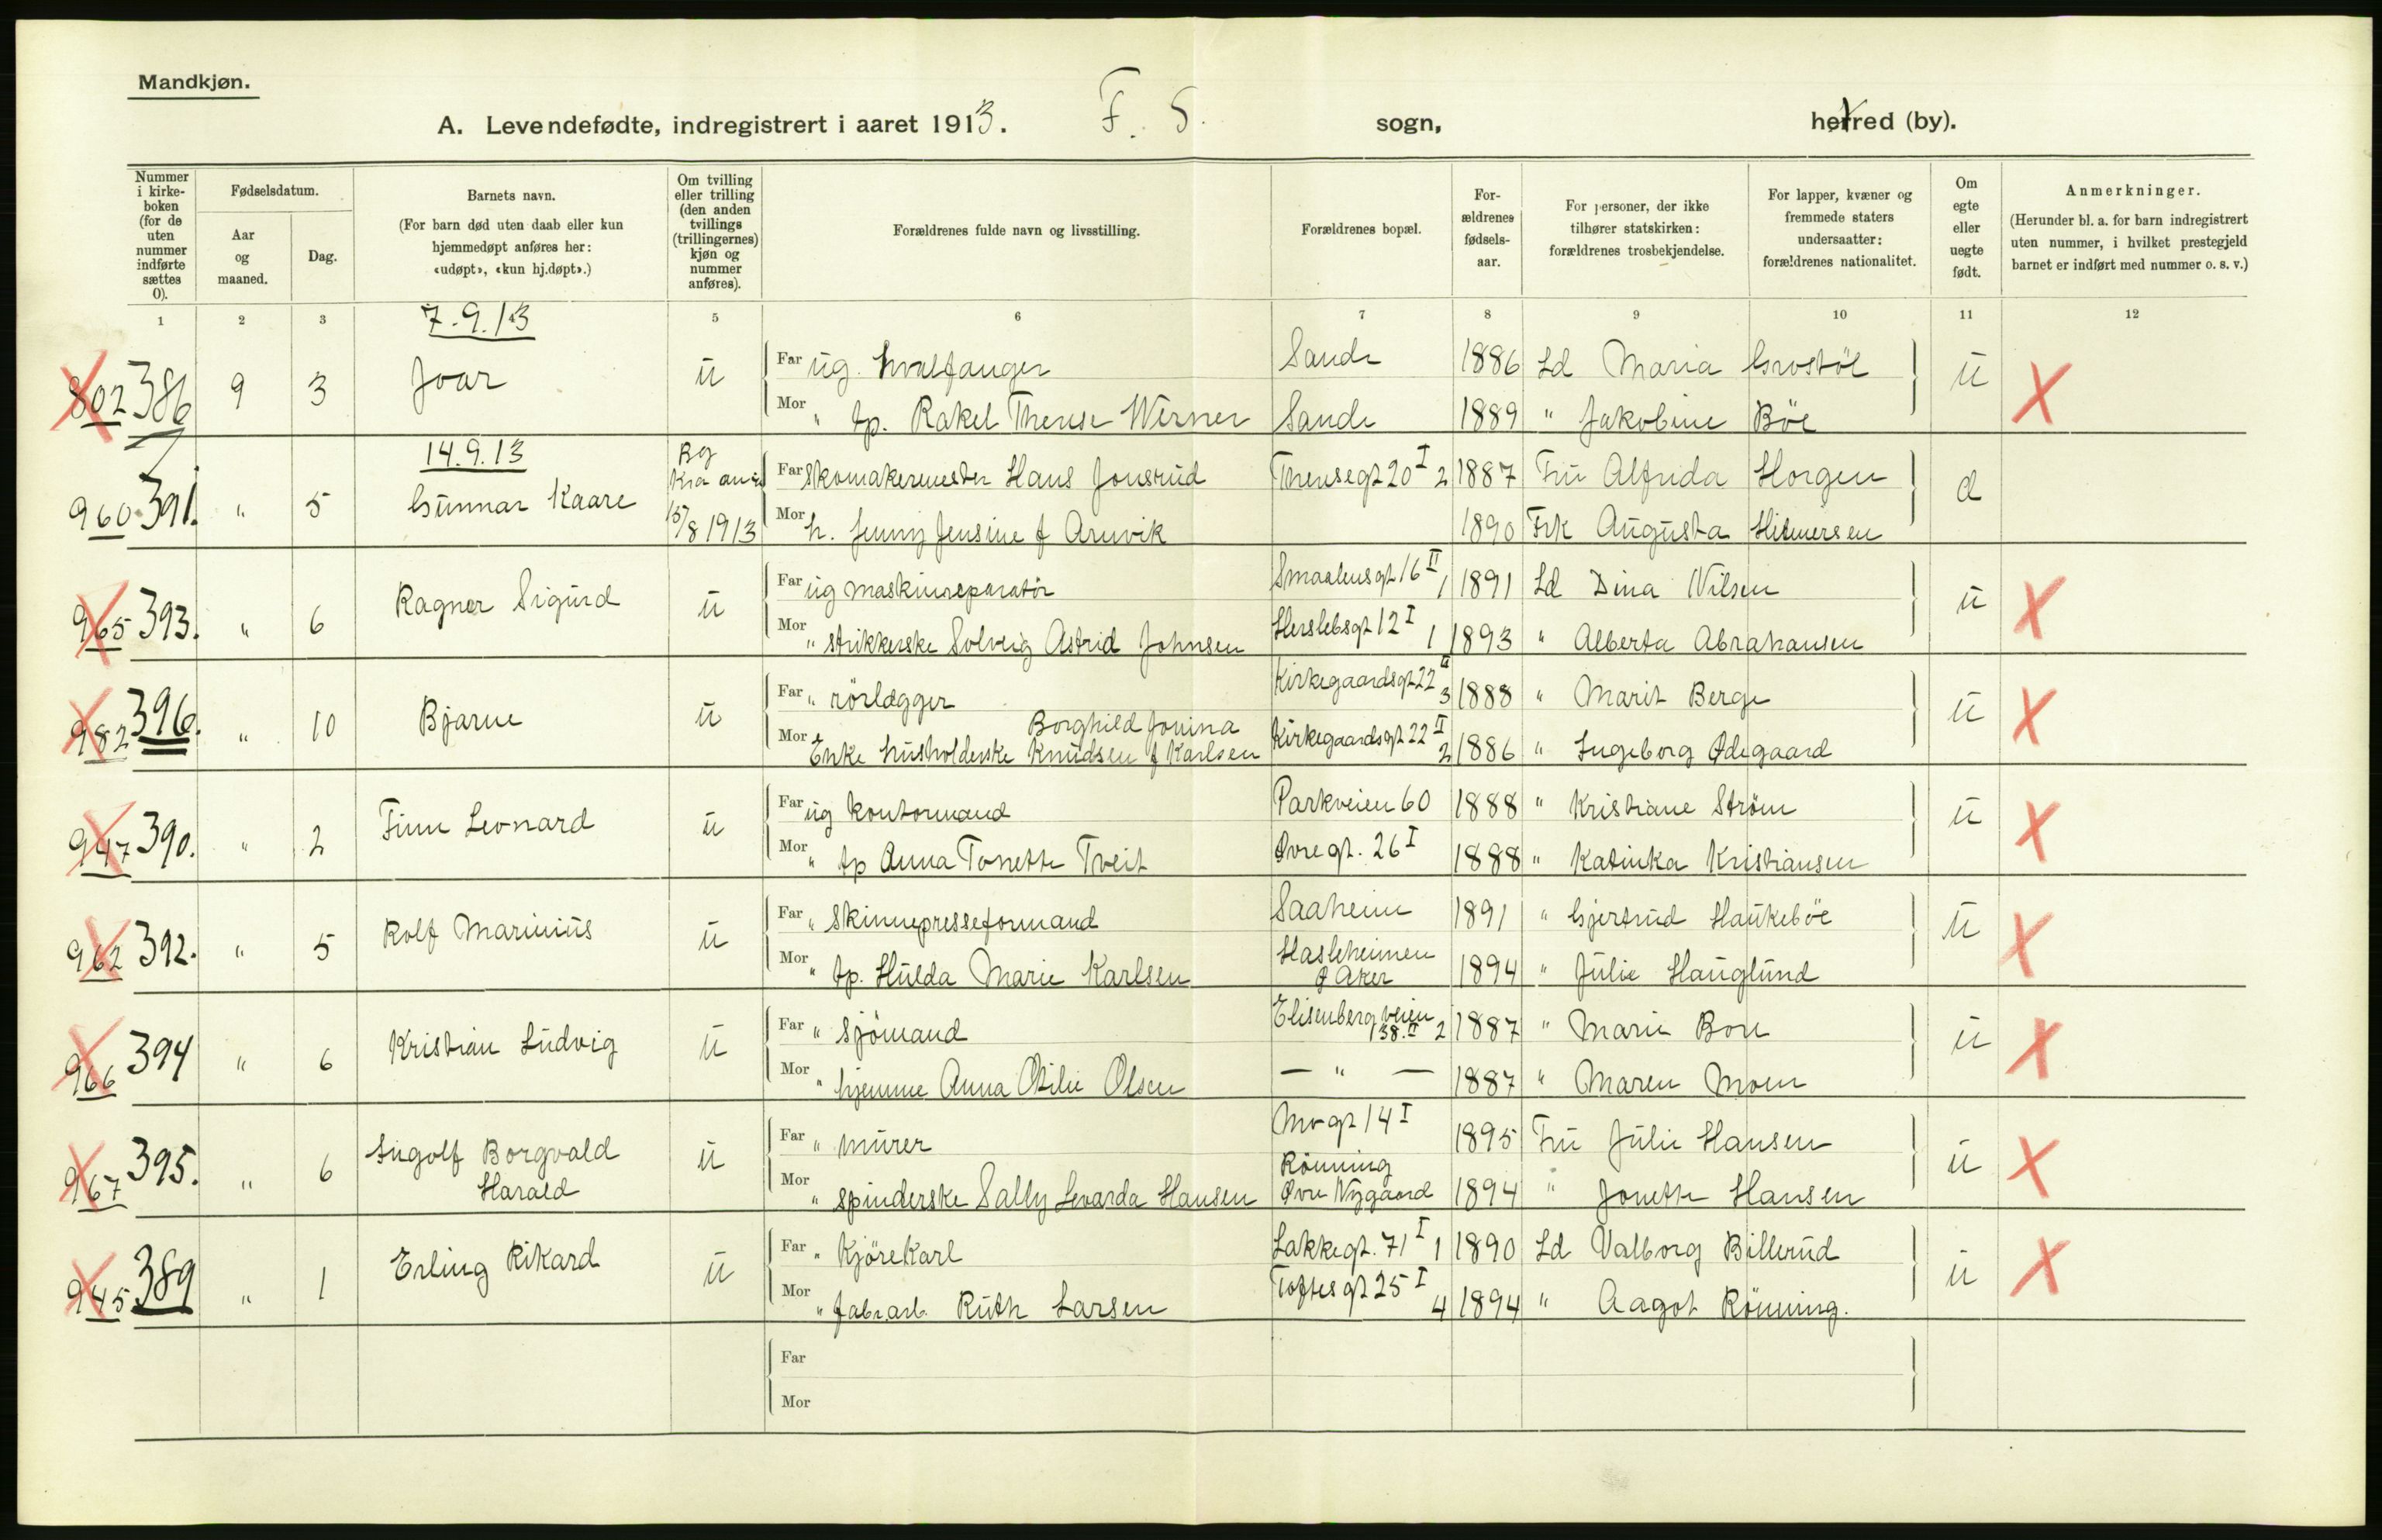 Mandkjøn.
A. Levendefødte, indregistrert i aaret 1913. F. S. sogn, herred (by).
Nummer i kirke-boken (for de uten nummer indførte sættes 0).
Fødselsdatum.
Aar og maaned.
Dag.
Barnets navn.
(For barn død uten daab eller kun hjemmedøpt anføres her: «udøpt», «kun hj.døpt».)
Om tvilling eller trilling (den anden tvillings (trillingernes) kjøn og nummer anføres).
Forældrenes fulde navn og livsstilling.
Forældrenes bopæl.
For-ældrenes fødsels-aar.
For personer, der ikke tilhører statskirken: forældrenes trosbekjendelse.
For lapper, kvæner og fremmede staters undersaatter: forældrenes nationalitet.
Om egte eller uegte født.
Anmerkninger.
(Herunder bl. a. for barn indregistrert uten nummer, i hvilket prestegjeld barnet er indført med nummer o. s. v.)
1 2 3 5 6 7 8 9 10 11 12
7.9.13
802 386 9 3 Joar ü
Far üg. hvalfanger Sande 1886 Ld Maria Grostöl ü X
Mor " tp. Rakel Therese Werner Sande 1889 " Jakobine Böe
14.9.13
960 391. " 5 Gunnar Kaare 15/8 1913
Far Skomakermester Hans Jonsrud Theresegt 20 I 2 1887 Fru Alfrida Horgen
Mor h. Jenny Jensine f Arnvik 1890 Frk Augusta Hilmersen
965 393. " 6 Ragnar Sigurd ü
Far üg maskinreparatör Smaalensgt 16 II 1 1891 Ld Dina Nilsen ü X
Mor " strikkerske Solveig Astrid Johnsen Herslebsgt 12 I 1 1893 " Alberta Abrahamsen
982 396. " 10 Bjarne ü
Far " rörlægger Kirkegaardsgt 22 II 3 1888 " Marit Berge ü X
Borghild Jonina
Mor Enke husholderske Knudsen f Karlsen Kirkegaardsgt 22 II 2 1886 " Ingeborg Ødegaard
947 390. " 2 Finn Leonard ü
Far üg kontormand Parkveien 60 1888 " Kristiane Ström ü X
Mor " tp Anna Tonette Tveit Øvregt. 26 I 1888 " Katinka Kristiansen
962 392. " 5 Rolf Marinius ü
Far " Skinnepresseformand Saaheim 1891 " Gjertrud Haukeböe ü X
Mor " tp. Hulda Marie Karlsen Hasleheimen Aker 1894 " Julie Hauglund
966 394 " 6 Kristian Ludvig ü
Far " Sjömand Elisenberg veien 38. II 2 1887 " Marie Bore ü X
Mor " hjemme Anna Otilie Olsen — " — 1887 " Maren Moen
967 395. " 6 Ingolf Borgvald Harald ü
Far " murer Mogt 14 I 1895 Fru Julie Hansen ü X
Mor " spinderske Sally Levarda Hansen Rönning Øvre Nygaard 1894 " Jonette Hansen
945 389 " 1 Erling Rikard ü
Far " Kjörekarl Lakkegt. 71 I 1 1890 Ld Valborg Billerud ü X
Mor " fabr.arb. Ruth Larsen Toftesgt 25 I 4 1894 " Aagot Rönning.
Far
Mor